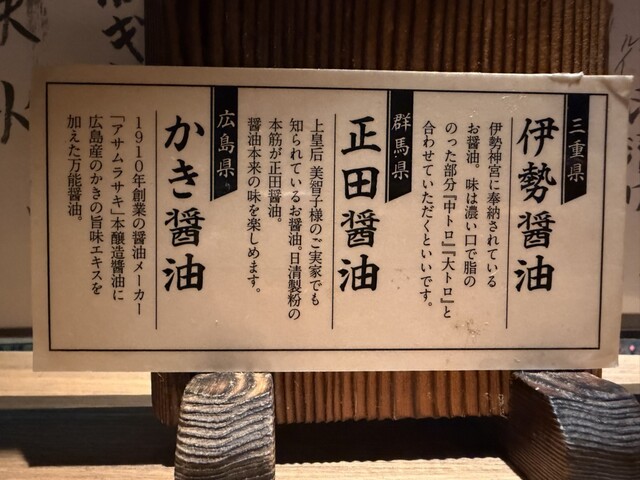 三重県
伊勢醤油
伊勢神宮に奉納されている
お醤油。味は濃い口で脂の
のった部分『中トロ』『大トロ』と
合わせていただくといいです。
群馬県
正田醤油
上皇后 美智子様のご実家でも
知られているお醤油。日清製粉の
本筋が正田醤油。
醤油本来の味を楽しめます。
広島県
かき醤油
1910年創業の醤油メーカー
「アサムラサキ」本醸造醬油に
広島産のかきの旨味エキスを
加えた万能醤油。